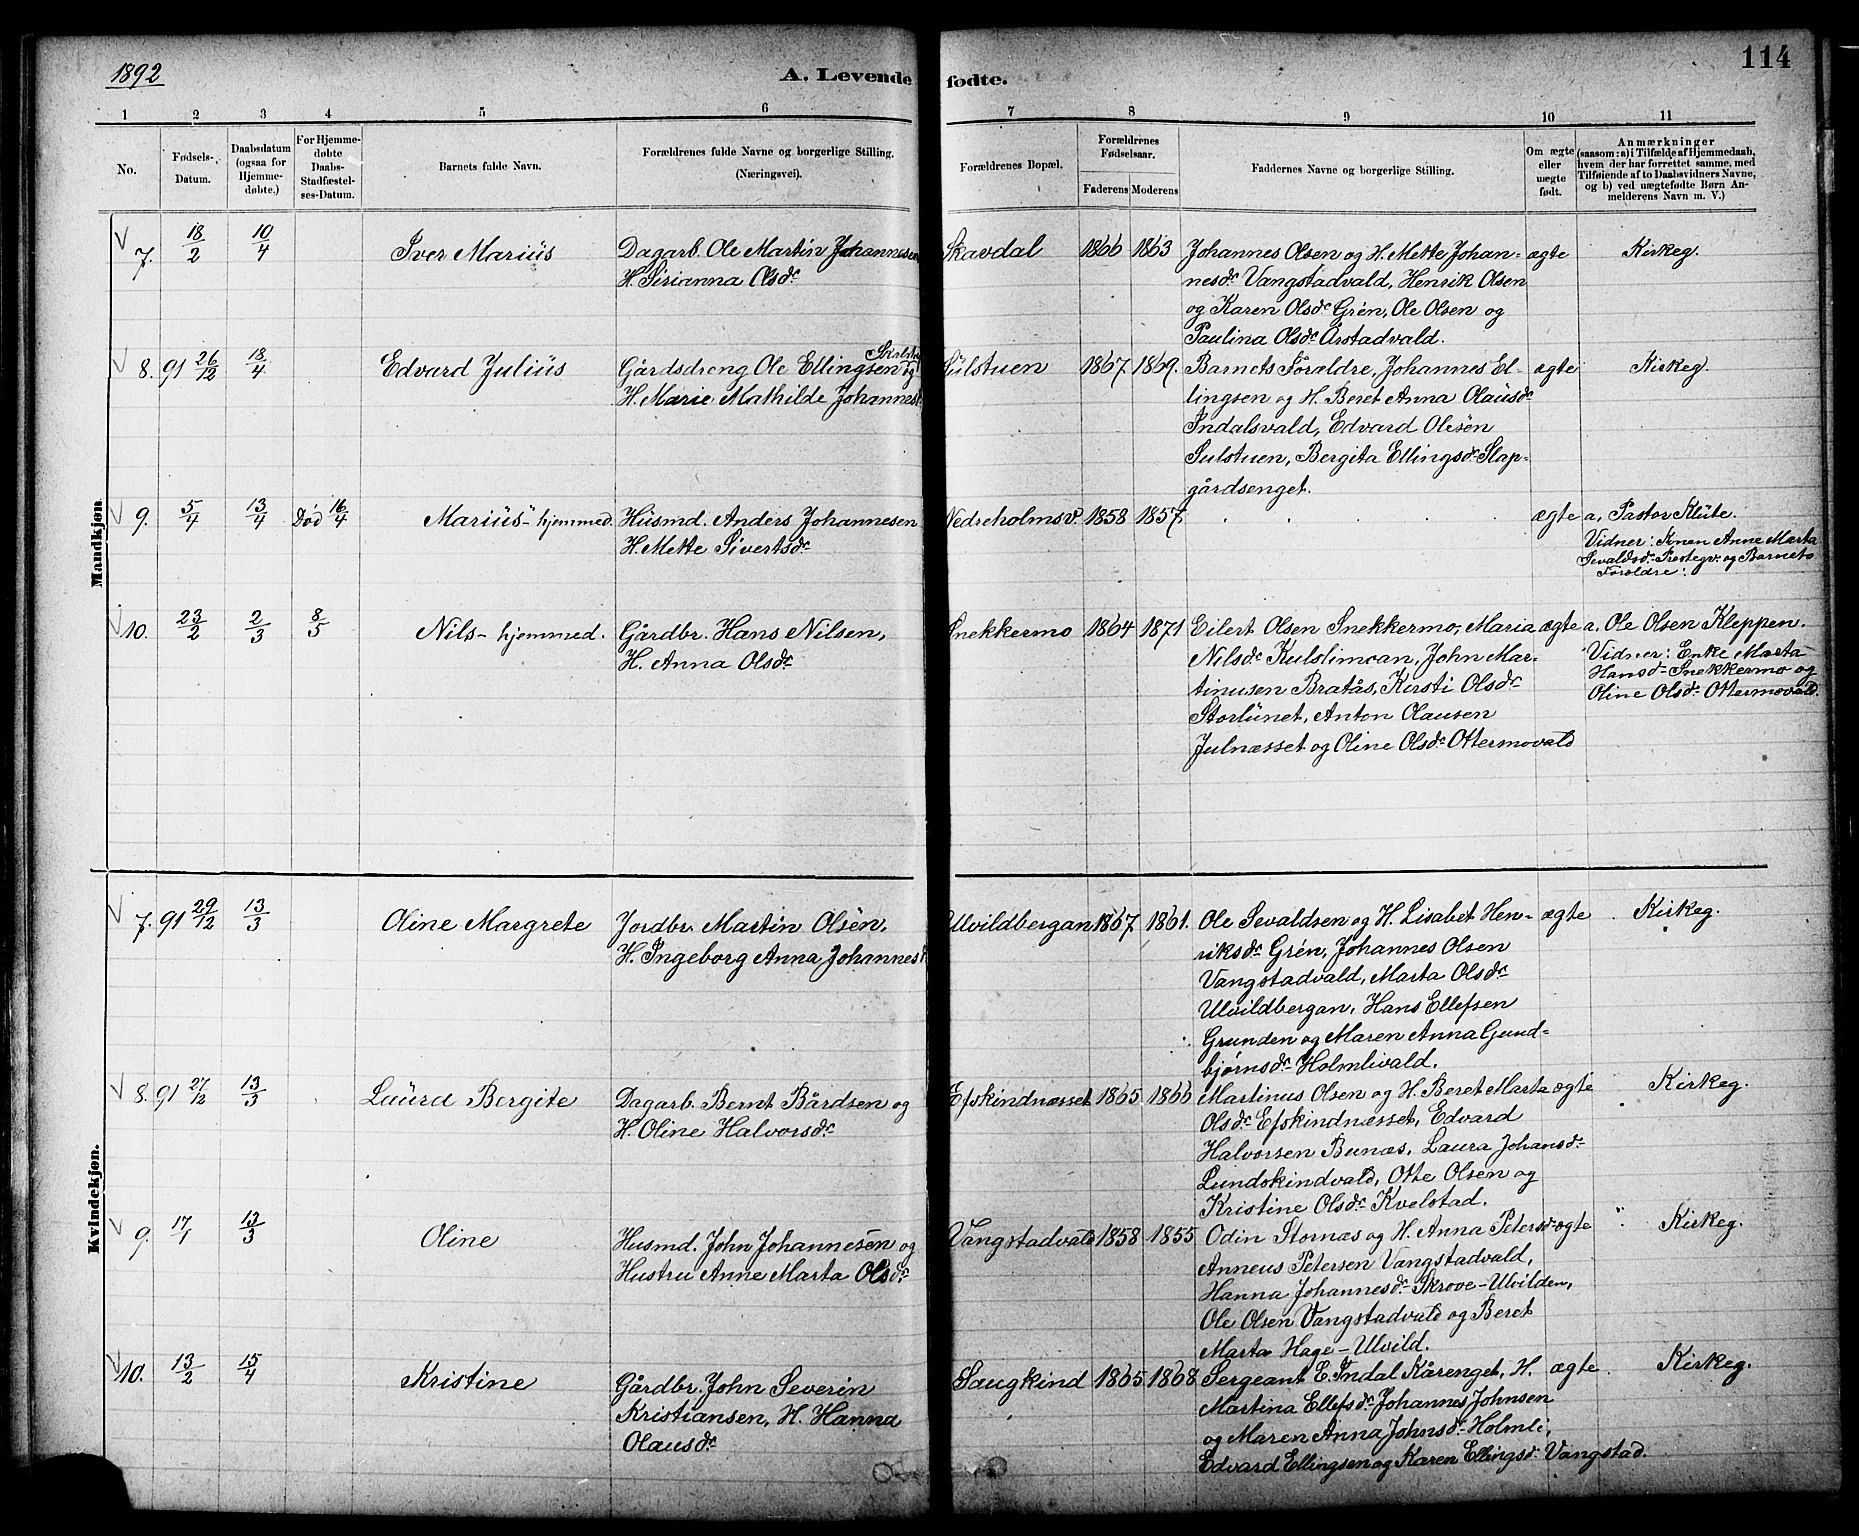 1892
A. Levende fødte.
114
1 2 3 4 5 6 7 8 9 10 11
No.
Fødsels-
Datum.
Daabsdatum
(ogsaa for
Hjemme-
døbte.)
For Hjemme-
døbte
Daabs-
Stadfæstel-
ses-Datum.
Barnets fulde Navn.
Forældrenes fulde Navne og borgerlige Stilling.
(Næringsvei).
Forældrenes Bopæl.
Forældrenes
Fødselsaar.
Faderens Moderens
Faddernes Navne og borgerlige Stilling.
Om ægte
eller
uægte
født.
Anmærkninger
(saasom: a) i Tilfælde af Hjemmedaab,
hvem der har forrettet samme, med
Tilføiende af to Daabsvidners Navne,
og b) ved uægtefødte Børn An-
melderens Navn m. V.)
Mandkjøn
V 7. 18/2 10/4 Iver Marius
Dagarb. Ole Martin Johannesen
H. Sirianna Olsdr
Skavdal 1866 1863
Johannes Olsen og H. Mette Johan-
nesdr Vangstadvald, Henrik Olsen
og Karen Olsdr Grén, Ole Olsen og
Paulina Olsdr Årstadvald.
ægte Kirkeg.
V 8. 91 26/12 18/4 Edvard Julius
Gårdsdreng Ole Ellingsen og
H. Marie Mathilde Johannesdr
Sulstuen 1867. 1869.
Barnets Forældre, Johannes El-
lingsen og H. Beret Anna Olausdr
Indalsvald, Edvard Olesen
Sulstuen, Bergita Ellingsdr Slap-
gårdsenget.
ægte Kirkeg.
V 9. 5/4 13/4 Død 16/4 Marius - hjemmed.
Husmd. Anders Johannesen
H. Mette Sivertsdr
Nedreholmsv. 1858 1857.
ægte a, Pastor Klüte.
Vidner: Konen Anne Marta
Sevaldsdr Prestegv. og Barnets
Forældre.
V 10. 23/2 2/3 8/5 Nils - hjemmed.
Gårdbr. Hans Nilsen,
H. Anna Olsdr
Snekkermo 1864 1871
Eilert Olsen Snekkermo, Maria
Nilsdr Kulslimoan, John Mar-
tinusen Bratås, Kirsti Olsdr
Storlunet, Anton Olausen
Julnæsset og Oline Olsdr Ottermovald
ægte a, Ole Olsen Kleppen.
Vidner: Enke Marta
Hansdr Snekkermo og
Oline Olsdr Ottermovald.
Kvindekjøn.
V 7. 91 29/12 13/3 Oline Margrete
Jordbr. Martin Olsen,
H. Ingeborg Anna Johannesdr
Ulvildbergan 1867 1861.
Ole Sevaldsen og H. Lisabet Hen-
riksdr Grén, Johannes Olsen
Vangstadvald, Marta Olsdr
Ulvildbergan, Hans Ellefsen
Grunden og Maren Anna Gund-
bjørnsdr Holmlivald.
ægte Kirkeg.
V 8. 91 27/12 13/3 Laura Bergite
Dagarb. Bernt Bårdsen og
H. Oline Halvorsdr
Efskindnæsset 1865 1866
Martinus Olsen og H. Beret Marta
Olsdr Efskindnæsset, Edvard
Halvorsen Bunæs, Laura Johansdr
Lundskindvald, Otte Olsen og
Kristine Olsdr Kvelstad.
ægte Kirkeg.
V 9. 17/1 13/3 Oline
Husmd. John Johannesen og
Hustru Anne Marta Olsdr
Vangstadvald 1858 1855
Odin Stornæs og H. Anna Petersdr
Anneus Petersen Vangstadvald,
Hanna Johannesdr Skrove-Ulvilden,
Ole Olsen Vangstadvald og Beret
Marta Hage-Ulvild.
ægte Kirkeg.
V 10. 13/2 15/4 Kristine
Gårdbr. John Severin
Kristiansen, H. Hanna
Olausdr
Saugkind 1865 1868
Sergeant E. Indal Kårenget, H.
Martina Ellefsdr Johannes Johnsen
og Maren Anna Johnsdr Holmli,
Edvard Ellingsen og Karen Ellingsdr Vangstad.
ægte Kirkeg.